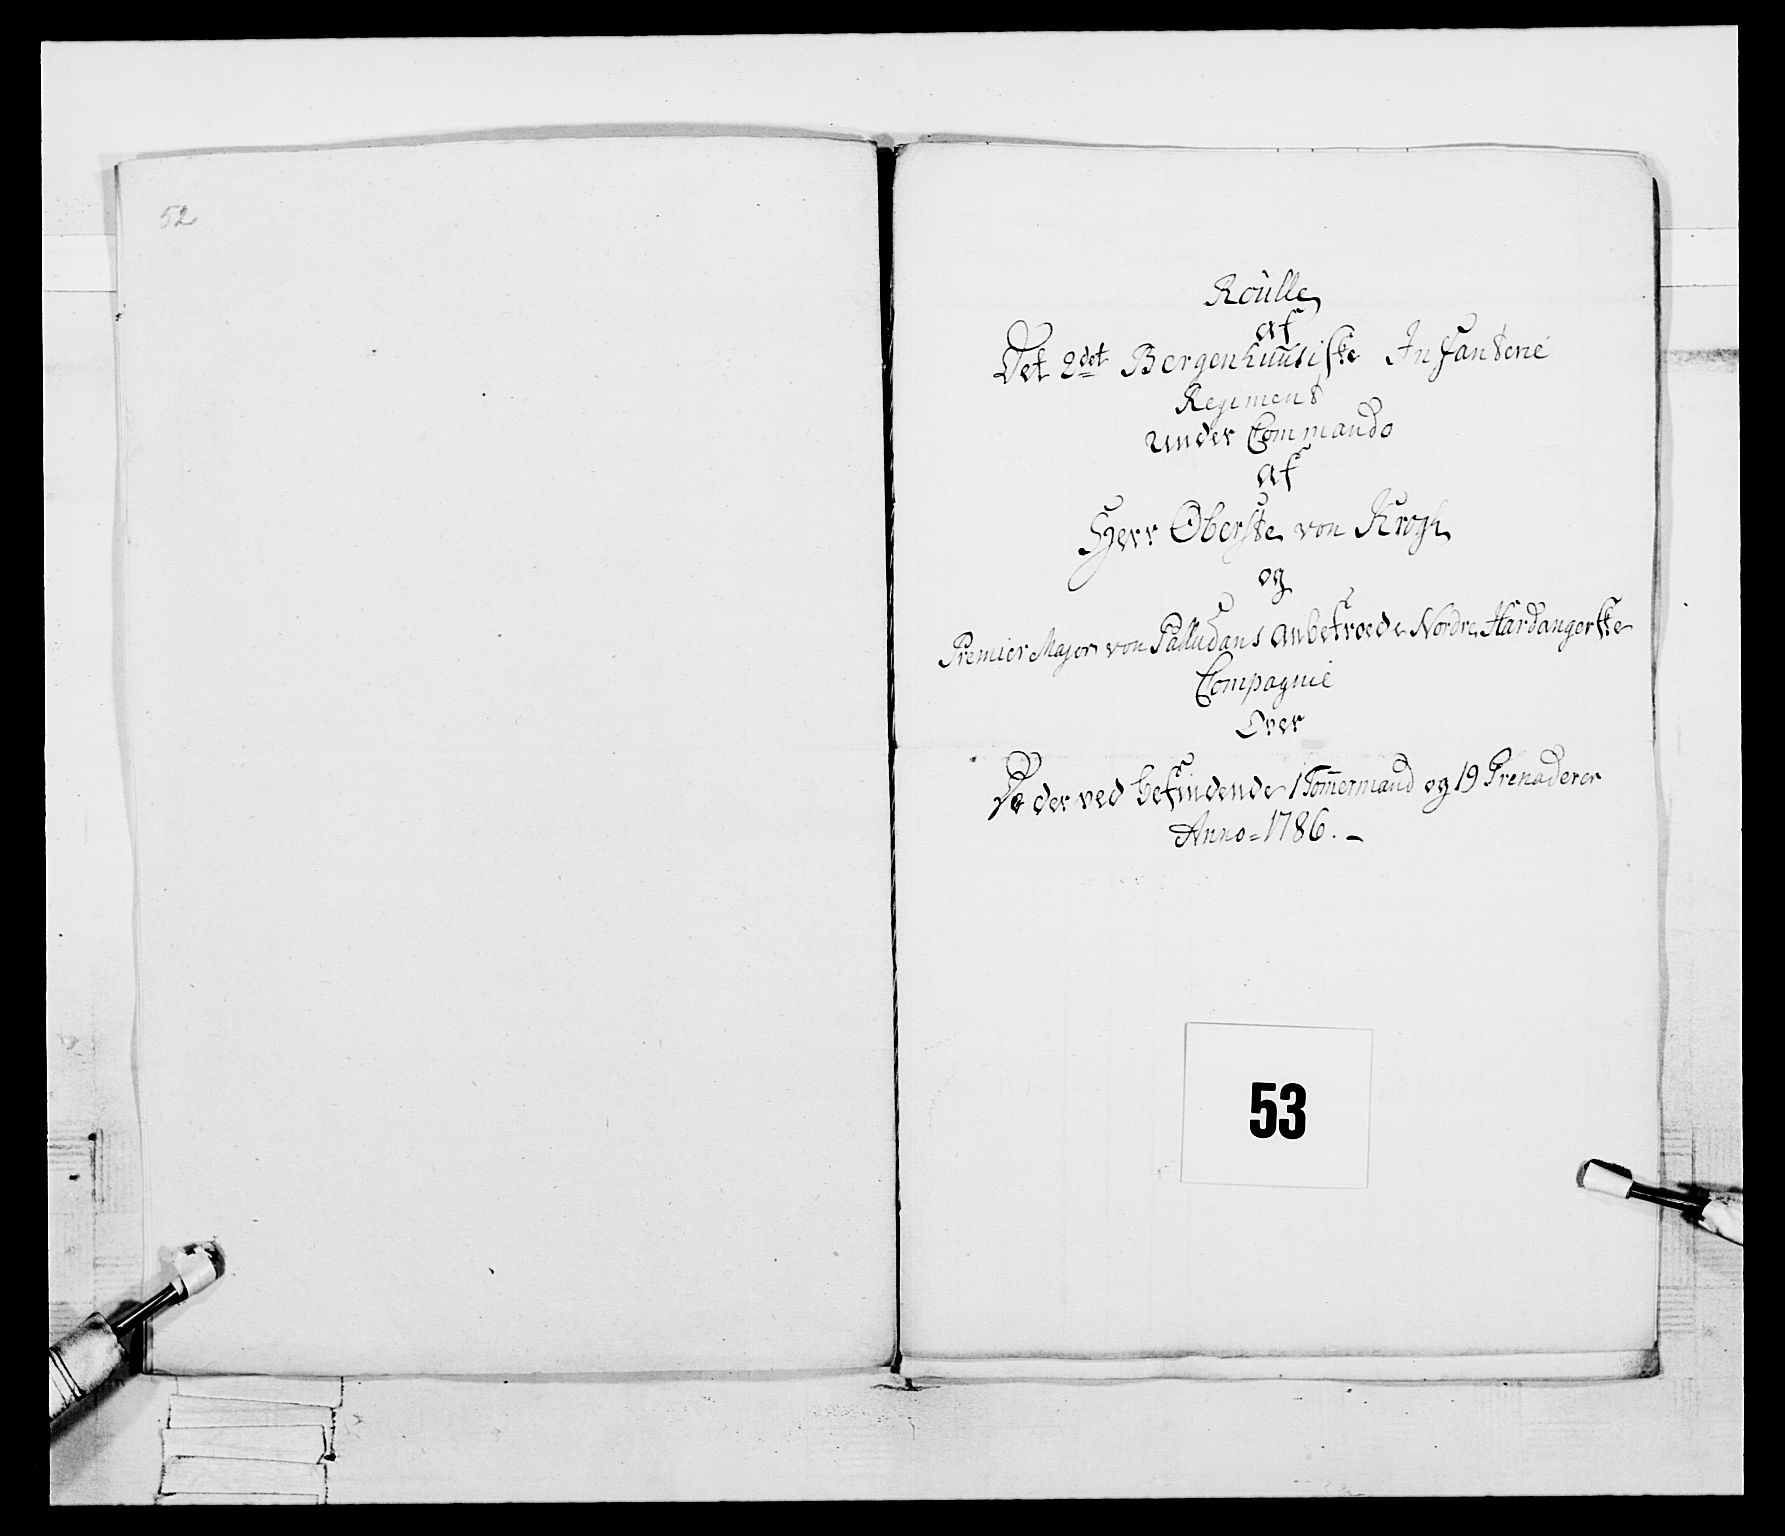 52
Roulle
af
Det 2det Bergenhuusiske Infanterie
Regiment
under Commando
af
Herr Oberste von Krogh
og
Premier Major von Palludans anbetroede Nordre Hardangerske
Compagnie
Over
De der ved befindende 1 Tom̄ermand og 19 Grenaderer
Anno = 1786. -
53